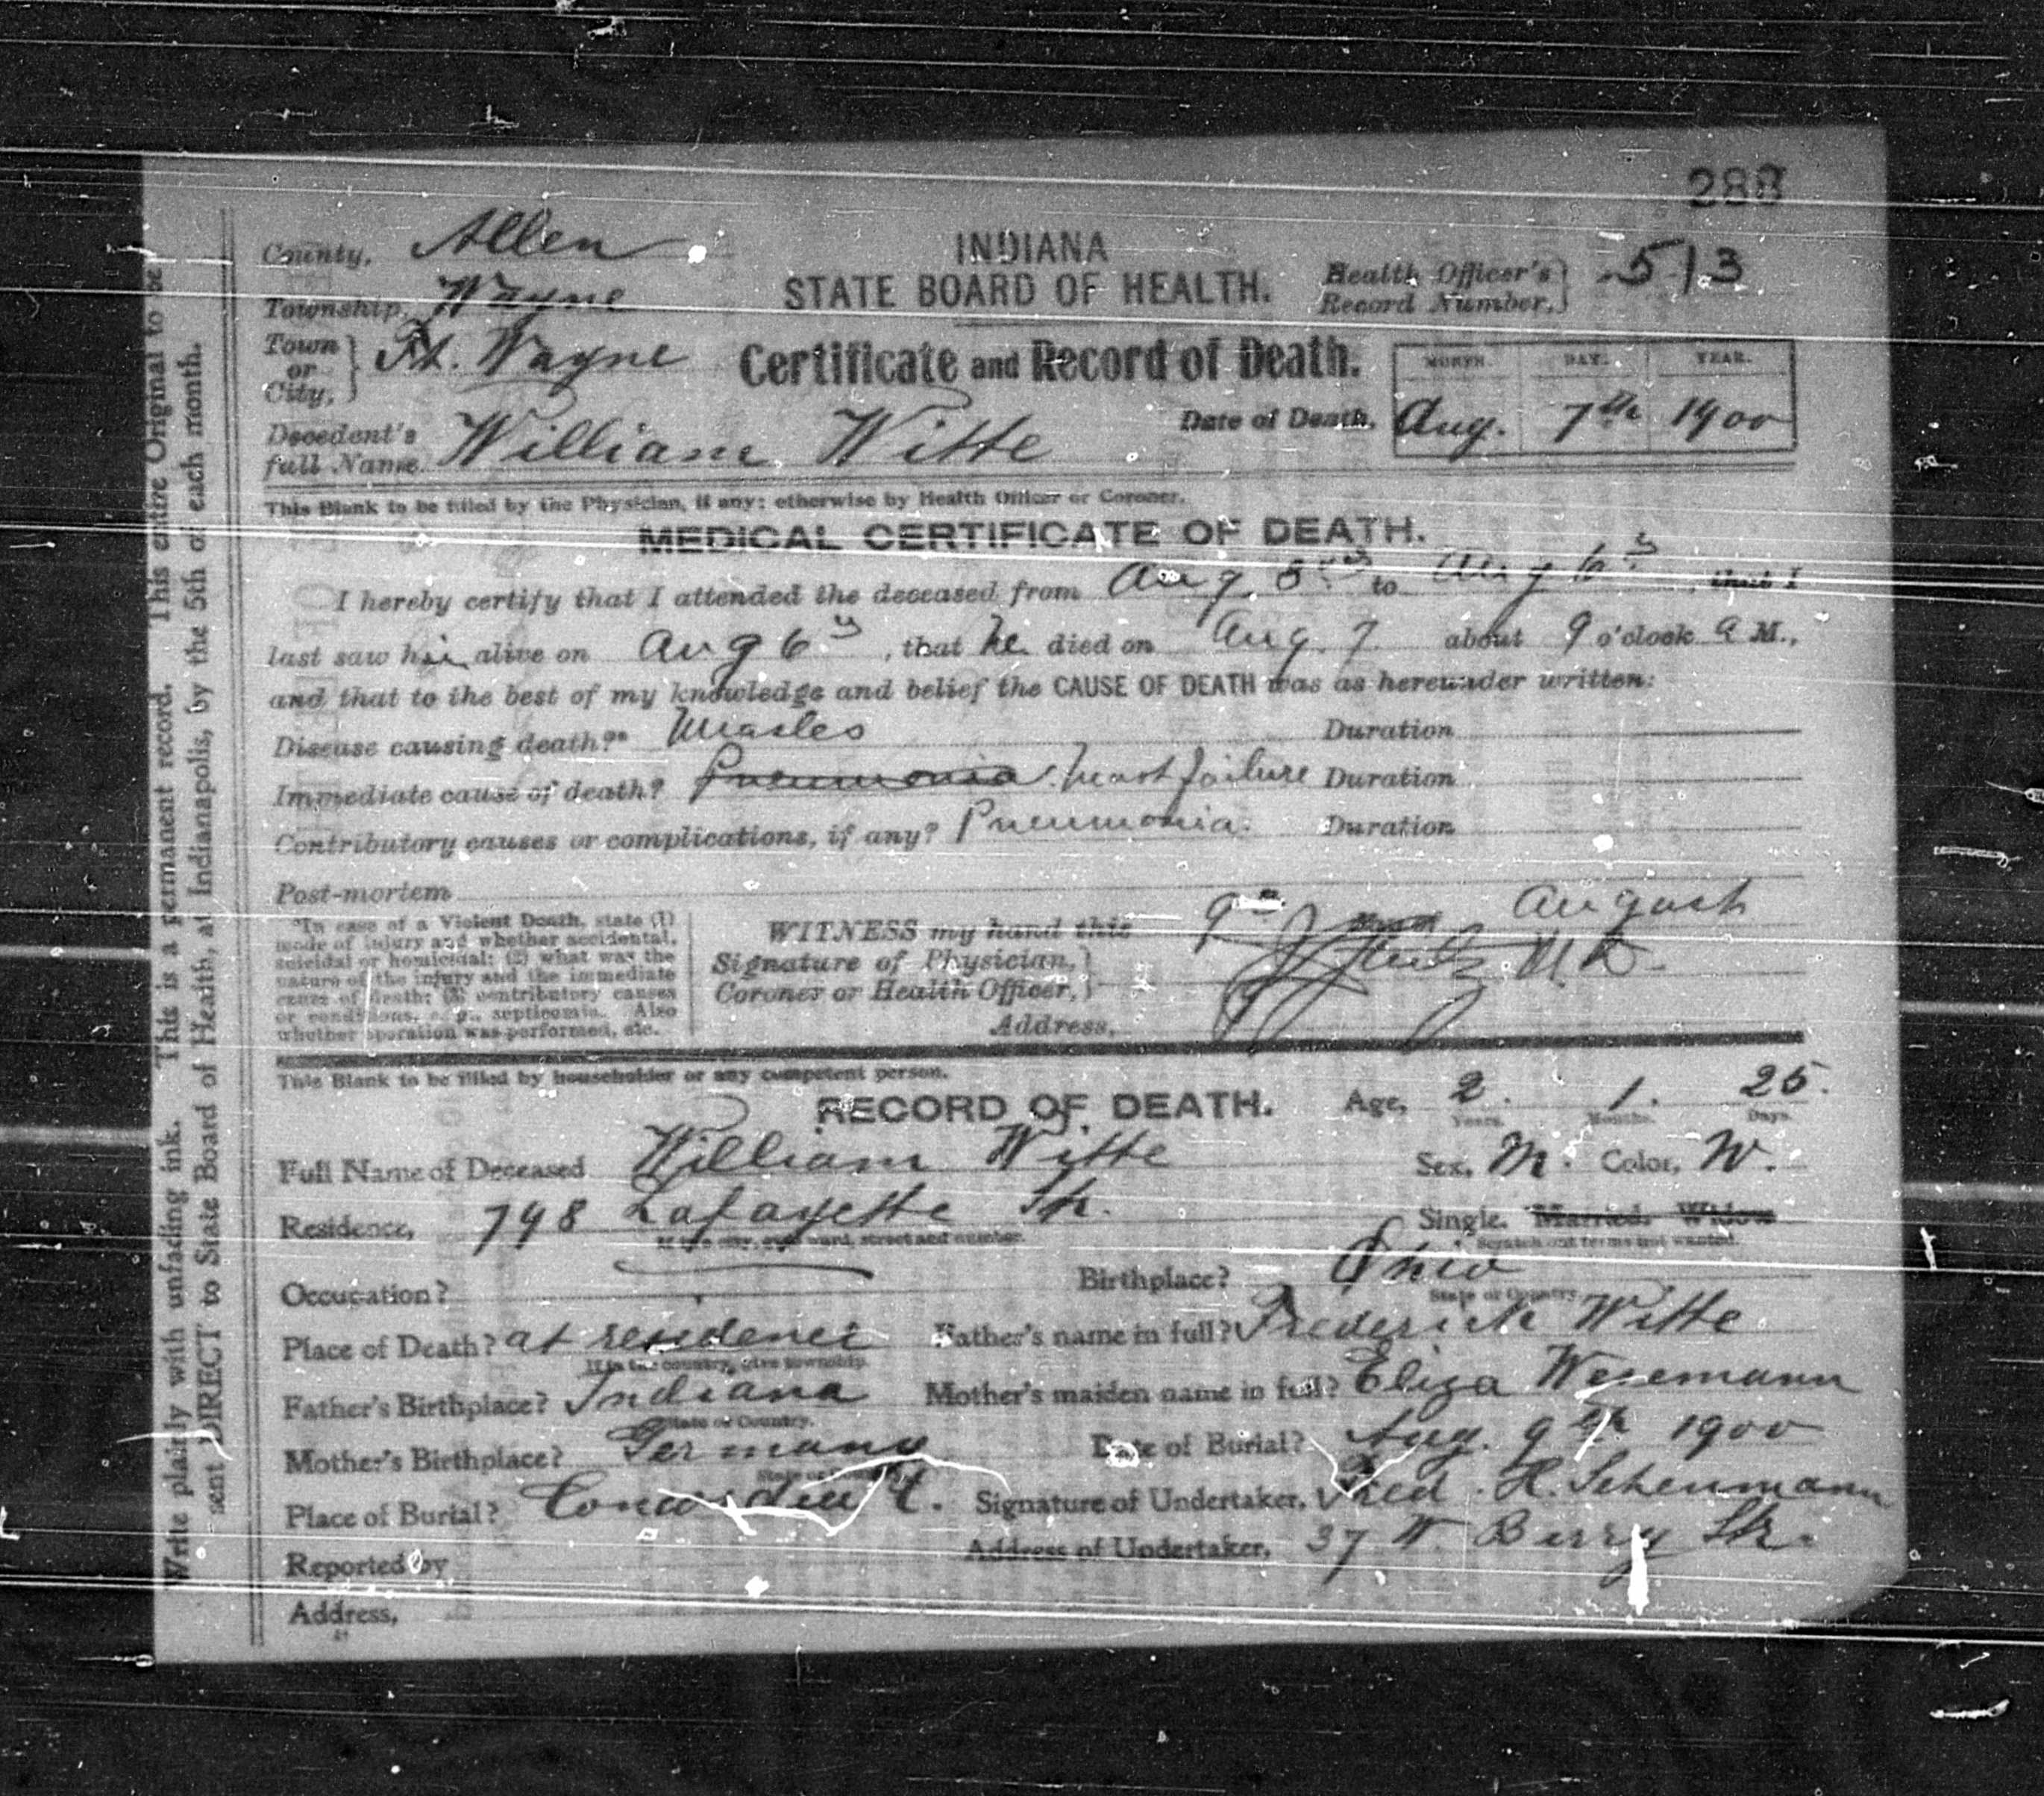 288
County, Allen
INDIANA
STATE BOARD OF HEALTH.
Health Officer's Record Number, 513
Township, Wayne
Town or City, Ft. Wayne
Certificate and Record of Death.
MONTH. DAY. YEAR.
Date of Death, Aug. 7th 1900
Decedent's full Name William Witte
This Blank to be filled by the Physician, if any; otherwise by Health Officer or Coroner.
MEDICAL CERTIFICATE OF DEATH.
I hereby certify that I attended the deceased from Aug. to Aug 6, that I
last saw him alive on Aug 6, that he died on Aug. 7 about 9 o'clock a M.,
and that to the best of my knowledge and belief the CAUSE OF DEATH was as hereunder written:
Disease causing death?* Measles Duration
Immediate cause of death? Pneumonia heart failure Duration
Contributory causes or complications, if any? Pneumonia. Duration
Post-mortem
*In case of a Violent Death, state (1)
mode of injury and whether accidental,
suicidal or homicidal; (2) what was the
nature of the injury and the immediate
cause of death; (3) contributory causes
or conditions, e. g., septicemia. Also
whether operation was performed, etc.
WITNESS my hand this 9 August
Signature of Physician, Coroner or Health Officer, M.D.
Address,
This Blank to be filled by householder or any competent person.
RECORD OF DEATH.
Age, 2. 1. 25.
Years. Months. Days.
Full Name of Deceased William Witte Sex, M. Color, W.
Residence, 798 Lafayette Str. Single. Married. Widow
If in city, give ward, street and number. Scratch out terms not wanted.
Occupation? Birthplace? Ohio
State or Country.
Place of Death? at residence Father's name in full? Frederick Witte
If in the country, give township.
Father's Birthplace? Indiana Mother's maiden name in full? Eliza Wesemann
State or Country.
Mother's Birthplace? Germany Date of Burial? Aug. 9th 1900
State or Country.
Place of Burial? Concordia C. Signature of Undertaker, Fred. H. Scheumann
Reported by Address of Undertaker, 37 W. Berry Str.
Address,
Write plainly with unfading ink. This is a permanent record. This entire Original to be
sent DIRECT to State Board of Health, at Indianapolis, by the 5th of each month.